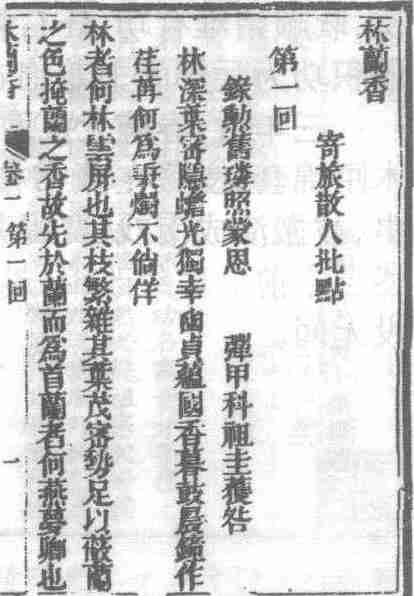 林蘭香
寄旅散人批點
第一回
錄勲舊璘照蒙恩　彈甲科祖圭獲咎
林深葉密隱蟾光獨幸幽貞蘊國香暮鼓晨鐘作
荏苒何為秉燭不倘佯
林者何林雲屏也其枝繁雜其葉茂密勢足以蔽蘭
之色掩蘭之香故先於蘭而為首蘭者何燕夢卿也
林蘭香　卷一　第一回　一